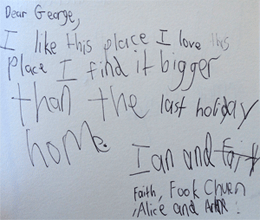 Dear George,
I like this place I love this
place I find it bigger
than the last holiday
home.
Ian and
Faith, Fook Chuen
Alice and